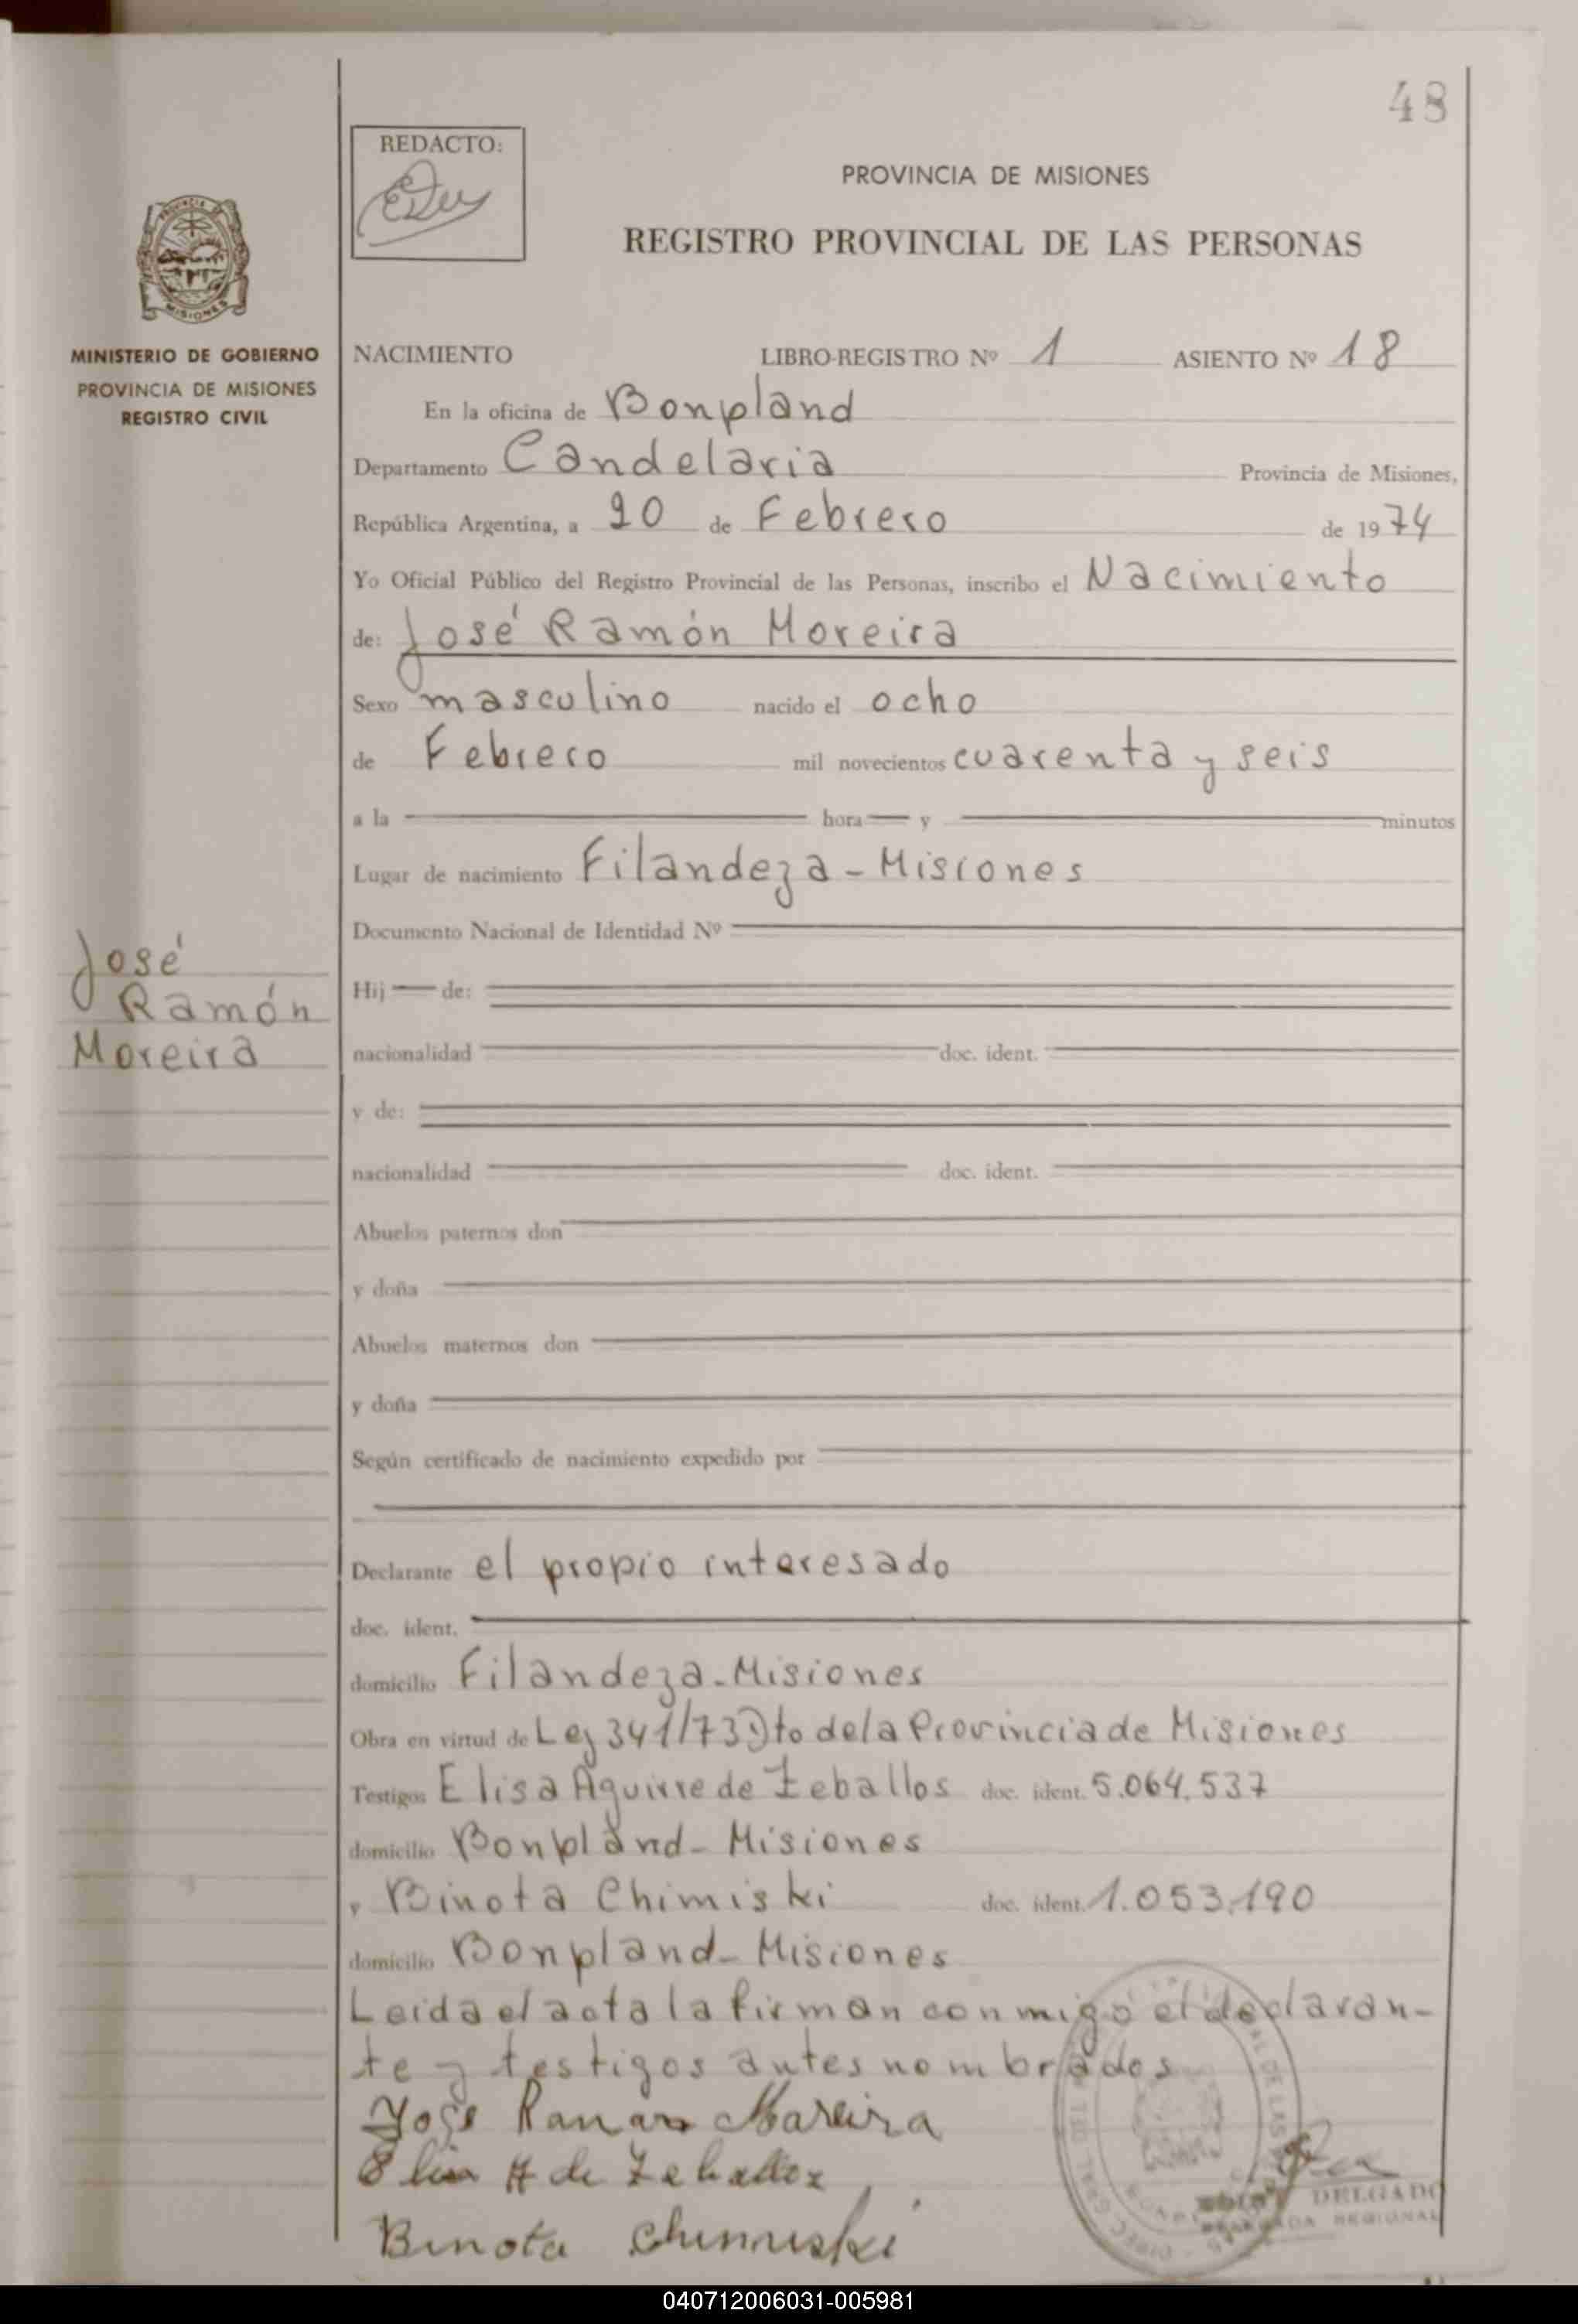 48
REDACTO:
PROVINCIA DE MISIONES
REGISTRO PROVINCIAL DE LAS PERSONAS
MISIONES
MINISTERIO DE GOBIERNO
PROVINCIA DE MISIONES
REGISTRO CIVIL
NACIMIENTO LIBRO-REGISTRO Nº 1 ASIENTO Nº 18
En la oficina de Bonpland
Departamento Candelaria Provincia de Misiones,
República Argentina, a 20 de Febrero de 1974
Yo Oficial Público del Registro Provincial de las Personas, inscribo el Nacimiento
de: José Ramón Moreira
Sexo masculino nacido el ocho
de Febrero mil novecientos cuarenta y seis
a la hora y minutos
Lugar de nacimiento Filandeza - Misiones
Documento Nacional de Identidad Nº
José
Ramón
Moreira
Hij de:
nacionalidad doc. ident.
y de:
nacionalidad doc. ident.
Abuelos paternos don
y doña
Abuelos maternos don
y doña
Según certificado de nacimiento expedido por
Declarante el propio interesado
doc. ident.
domicilio Filandeza - Misiones
Obra en virtud de Ley 341/73 Dto de la Provincia de Misiones
Testigos Elisa Aguirre de Zeballos doc. ident. 5.064.537
domicilio Bonpland - Misiones
y Binota Chimiski doc. ident. 1.053.190
domicilio Bonpland - Misiones
Leida el acta la firman conmigo el declaran-
te y testigos antes nombrados
Jose Ramon Moreira
Elisa A de Zeballoz
Binota Chimiski
DELGADO
REGIONAL
040712006031-005981